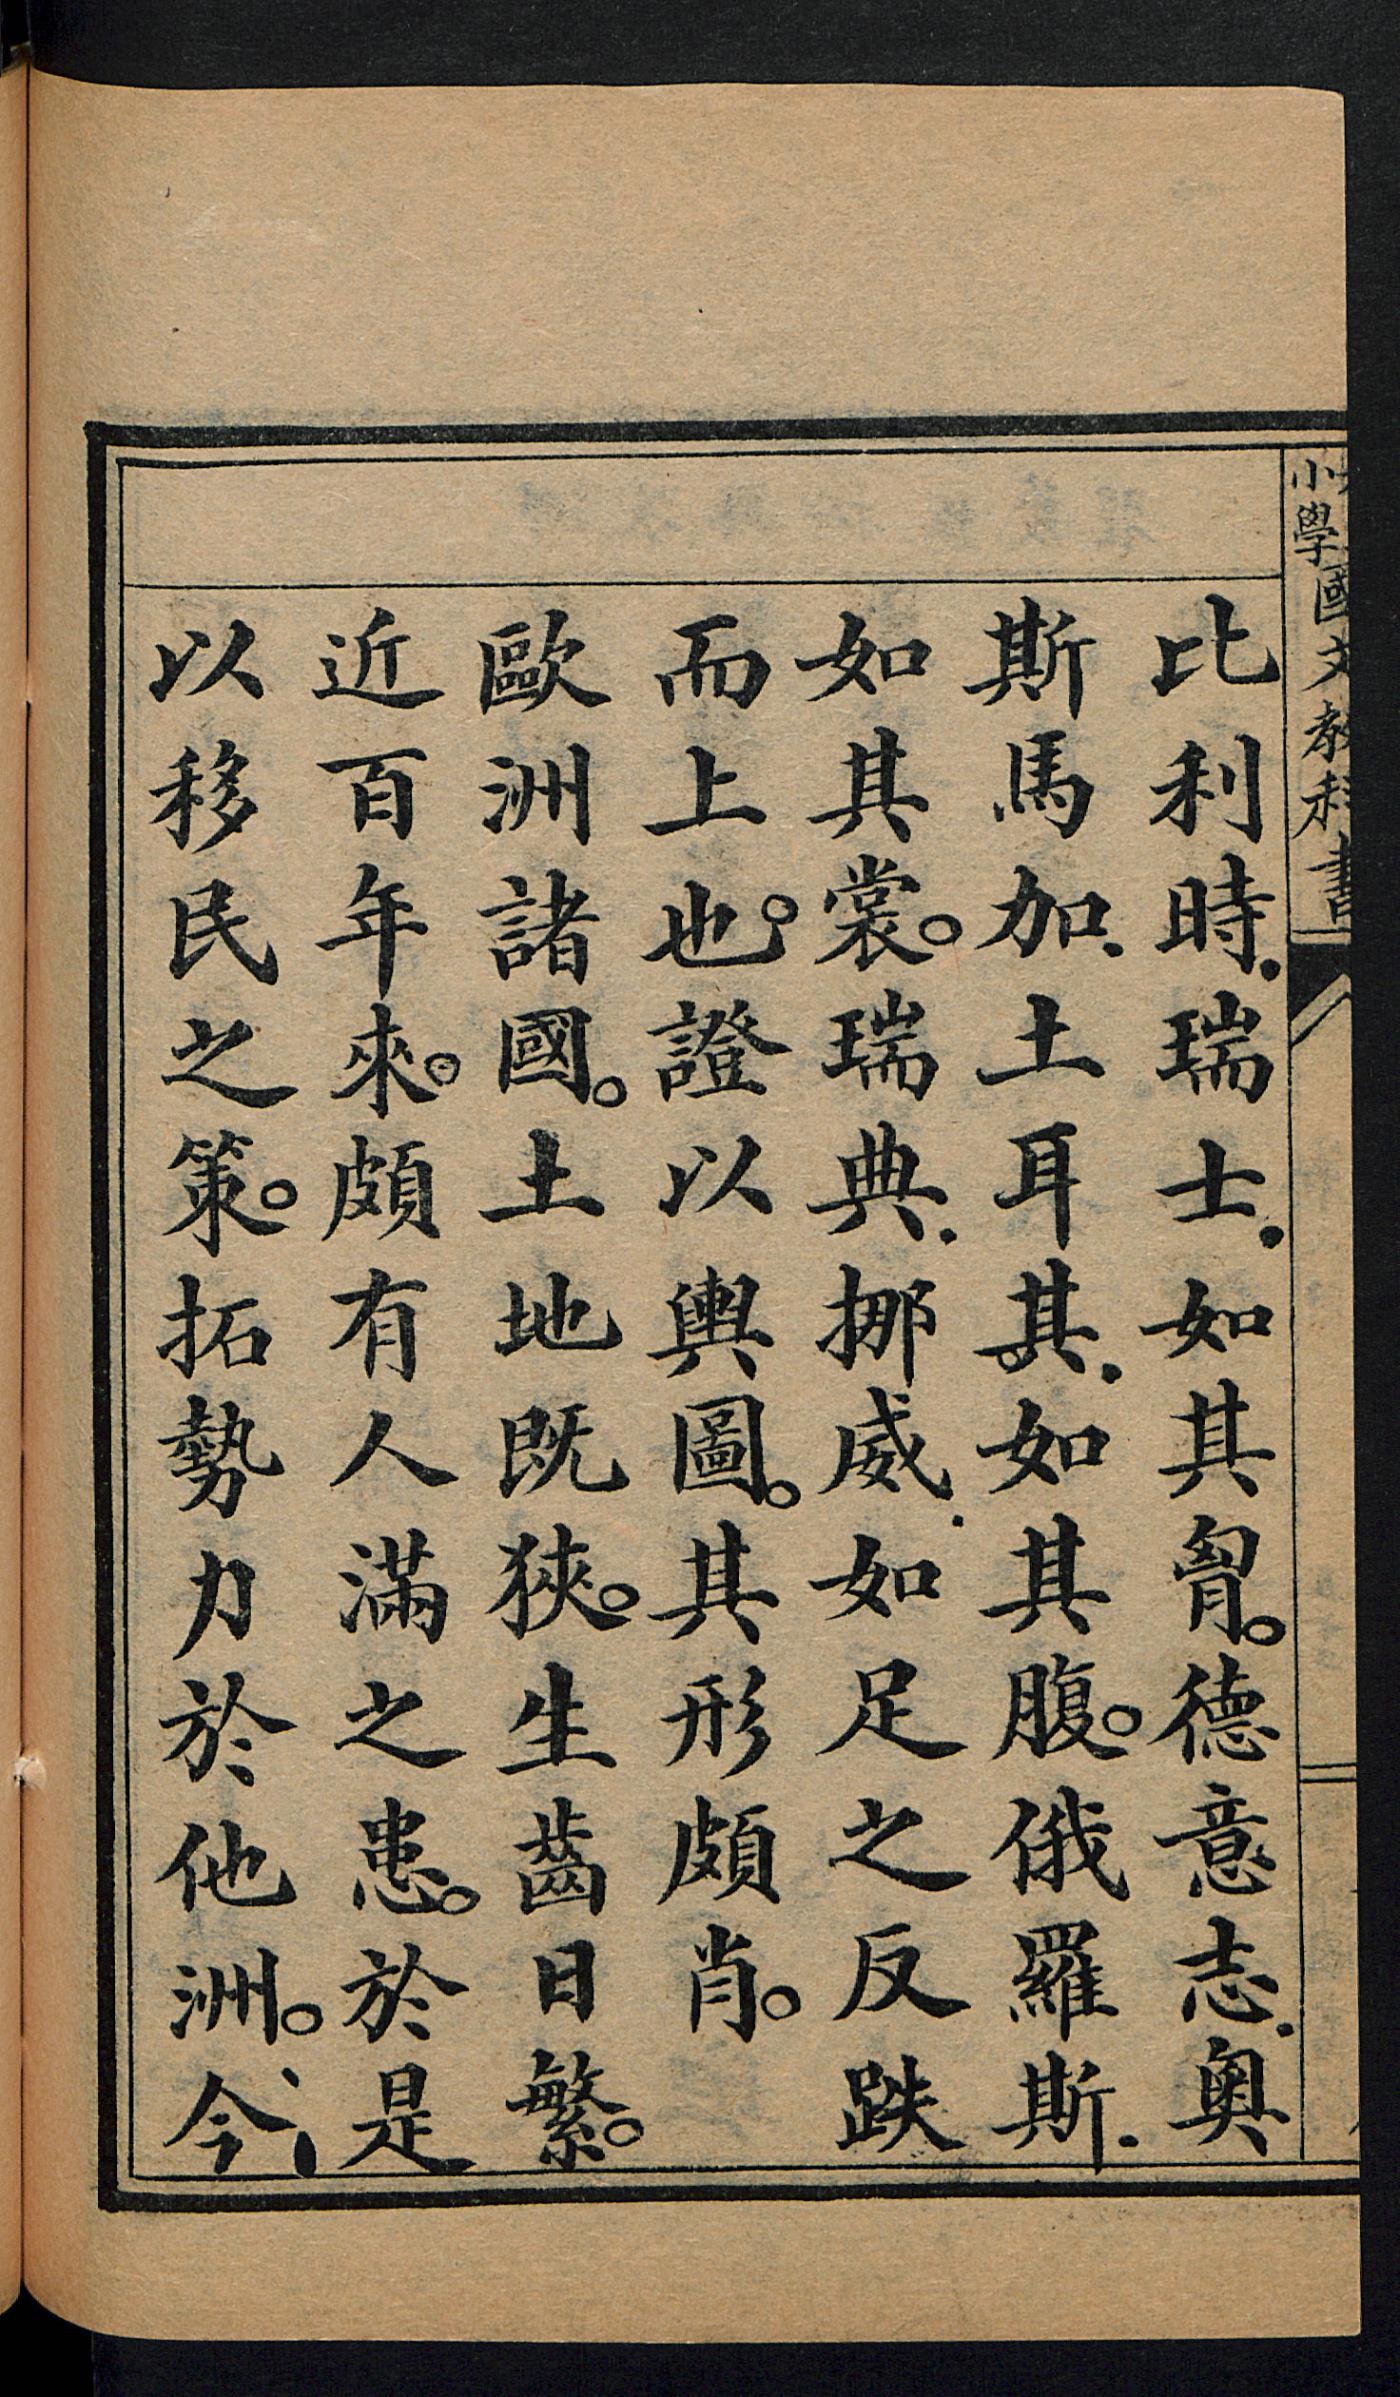 小學國文教科書
比利時．瑞士．如其胷。德意志．奧
斯馬加．土耳其．如其腹。俄羅斯．
如其裳。瑞典．挪威．如足之反跌
而上也。證以輿圖。其形頗肖。
歐洲諸國。土地既狹。生齒日繁。
近百年來。頗有人滿之患。於是
以移民之策。拓勢力於他洲。今